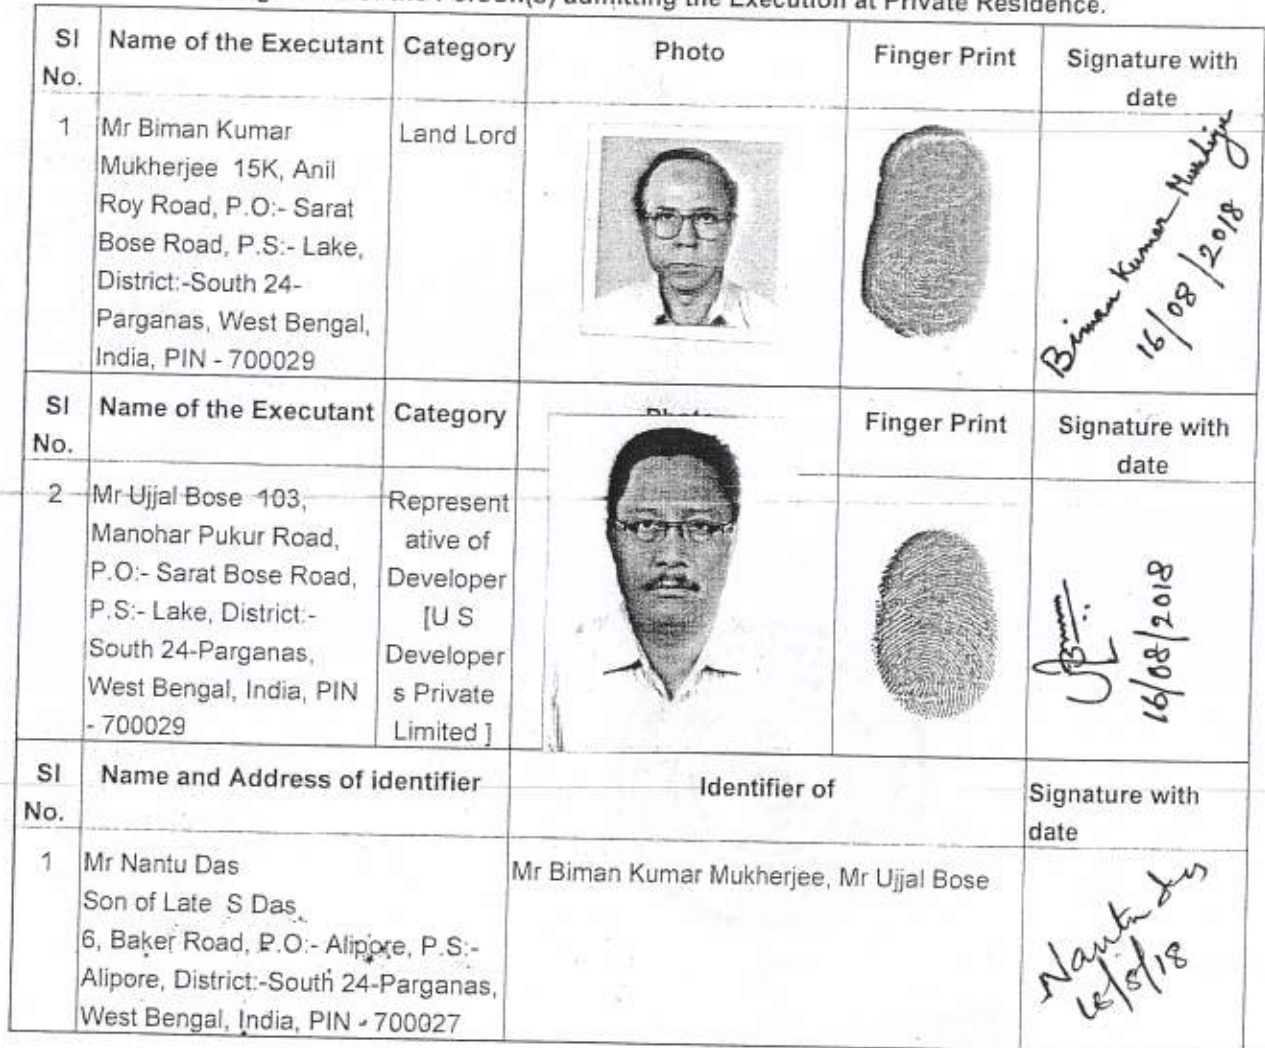 the Person(s) admitting the Execution at Private Residence.
Sl No. Name of the Executant Category Photo Finger Print Signature with date
1
Mr Biman Kumar
Mukherjee 15K, Anil
Roy Road, P.O:- Sarat
Bose Road, P.S:- Lake,
District:-South 24-
Parganas, West Bengal,
India, PIN - 700029
Land Lord
Biman Kumar Mukherjee
16/08/2018
Sl No. Name of the Executant Category Photo Finger Print Signature with date
2
Mr Ujjal Bose 103,
Manohar Pukur Road,
P.O:- Sarat Bose Road,
P.S:- Lake, District:-
South 24-Parganas,
West Bengal, India, PIN
- 700029
Represent
ative of
Developer
[U S
Developer
s Private
Limited ]
16/08/2018
Sl No. Name and Address of identifier Identifier of Signature with date
1
Mr Nantu Das
Son of Late S Das
6, Baker Road, P.O:- Alipore, P.S:-
Alipore, District:-South 24-Parganas,
West Bengal, India, PIN - 700027
Mr Biman Kumar Mukherjee, Mr Ujjal Bose
Nantu Das
16/8/18